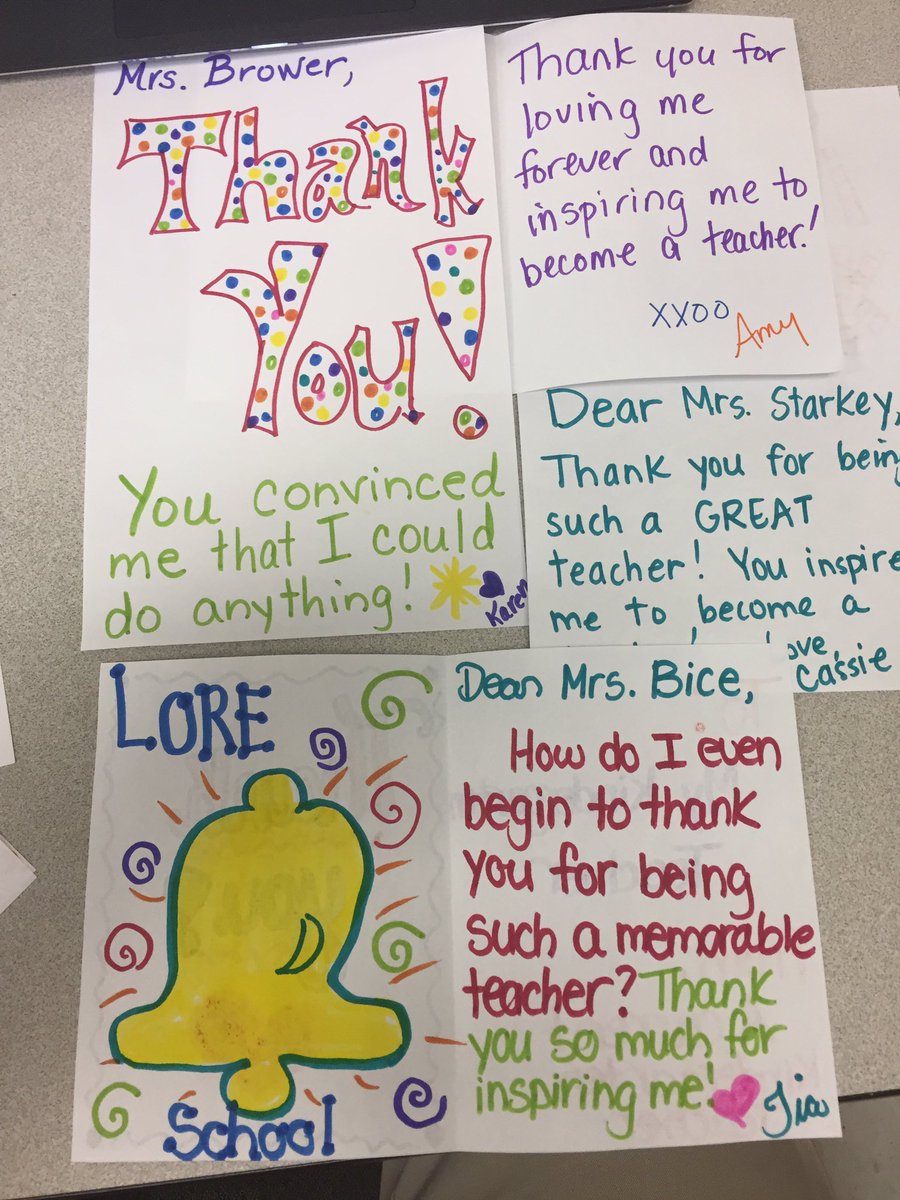 Mrs. Brower,
Thank
You!
You convinced
me that I could
do anything!
Karen
Thank you for
loving me
forever and
inspiring me to
become a teacher!
XXOO
Amy
Dear Mrs. Starkey,
Thank you for bein
such a GREAT
teacher! You inspire
me to become a
ove,
Cassie
LORE
School
Dear Mrs. Bice,
How do I even
begin to thank
you for being
such a memorable
teacher? Thank
you so much for
inspiring me!
Tia